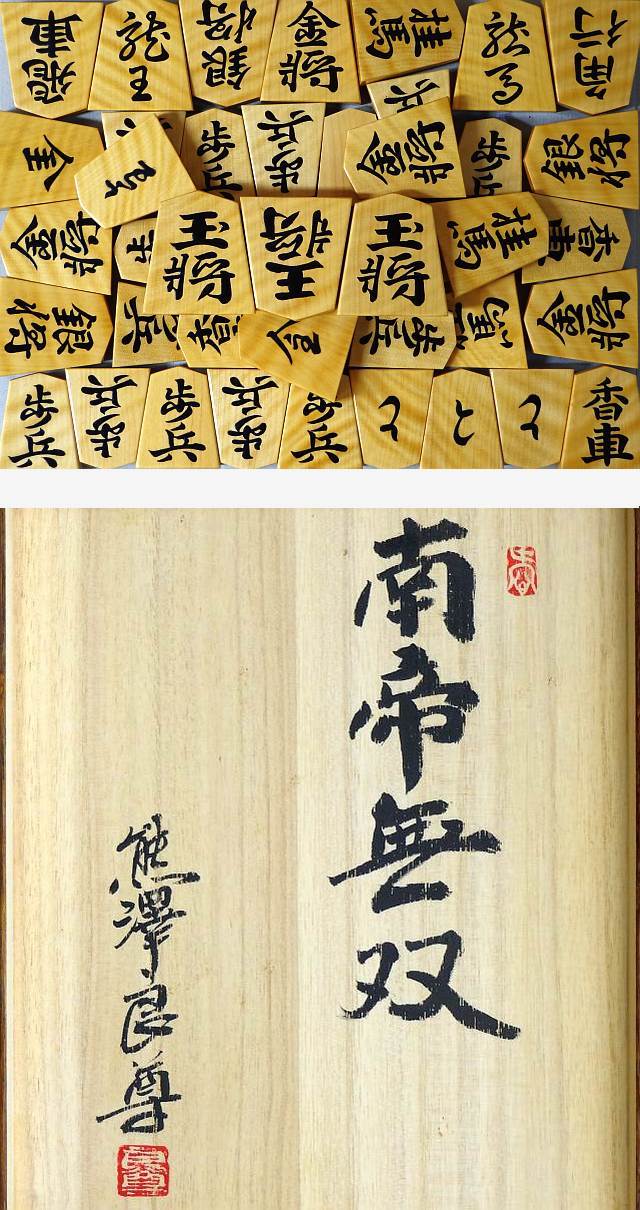 飛車
龍王
銀将
金将
桂馬
龍馬
角行
全
歩兵
歩兵
金将
歩兵
銀将
金将
玉将
王将
玉将
桂馬
香車
銀将
歩兵
歩兵
金将
歩兵
歩兵
歩兵
歩兵
歩兵
と
と
と
香車
南帝無双
熊澤良尊
良尊